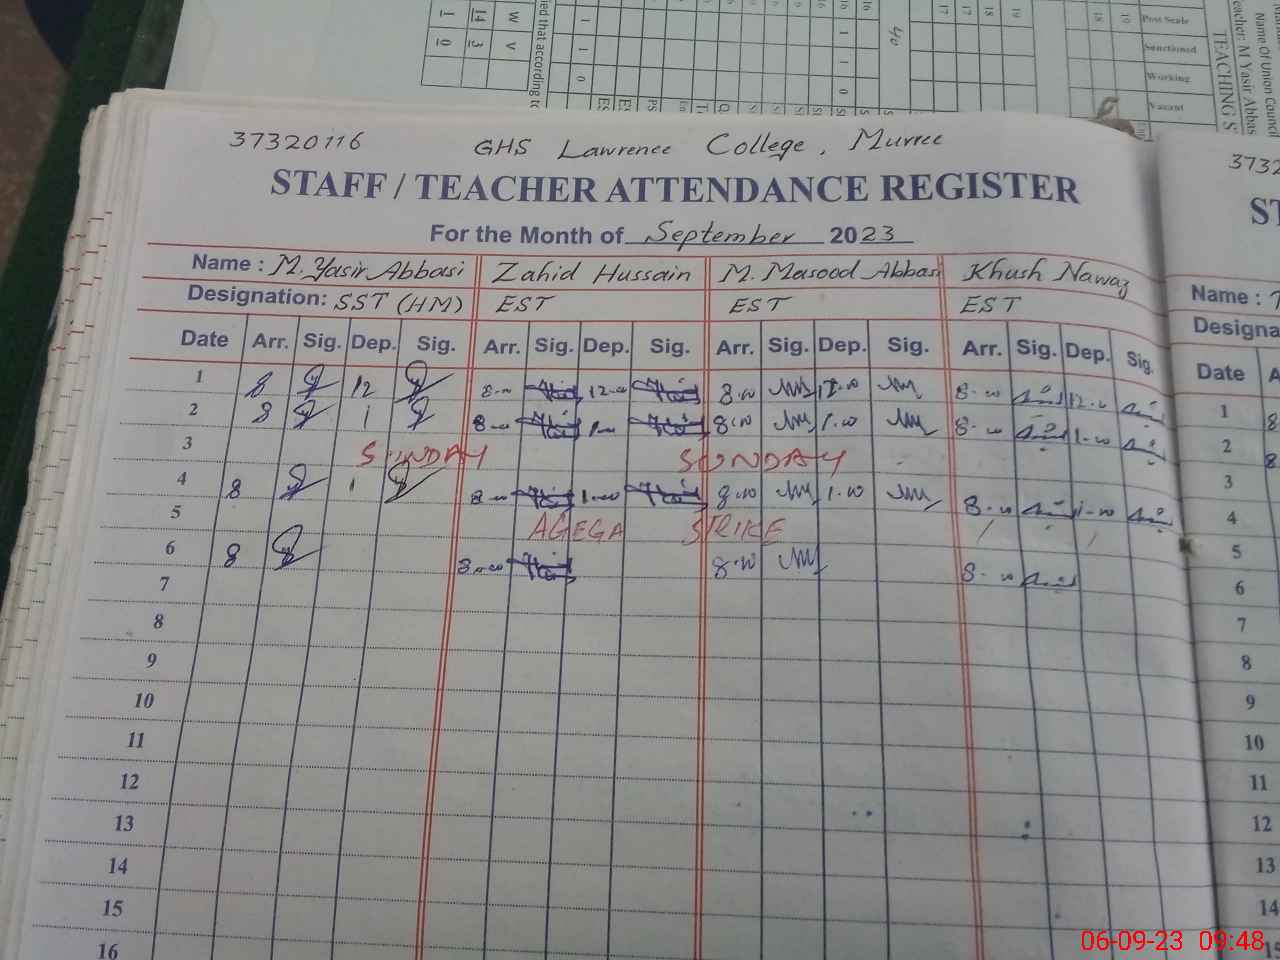 37320116 GHS Lawrence College, Murree
STAFF / TEACHER ATTENDANCE REGISTER
For the Month of September 2023
Name : M. Yasir Abbasi Zahid Hussain M. Masood Abbasi Khush Nawaz
Designation: SST (HM) EST EST EST
Date Arr. Sig. Dep. Sig. Arr. Sig. Dep. Sig. Arr. Sig. Dep. Sig. Arr. Sig. Dep. Sig.
1 8 12 8-00 12-00 8-00 12-00 8-00 12-00
2 8 1 8-00 1-00 8-00 1-00 8-00 1-00
3 SUNDAY SUNDAY
4 8 1 8-00 1-00 8-00 1-00 8-00 1-00
5 AGEGA STRIKE
6 8 8-00 8-00 8-00
7
8
9
10
11
12
13
14
15
16
3732
ST
Name :
Designa
Date A
1 8
2 8
3
4
5
6
7
8
9
10
11
12
13
14
15
W 14 1
V 3 0
ned that according to
40
17 17 18 19
18 19 Post Scale
Sanctioned
Working
Vacant
TEACHING S
eacher: M Yasir Abbas
Name Of Union Council
06-09-23 09:48